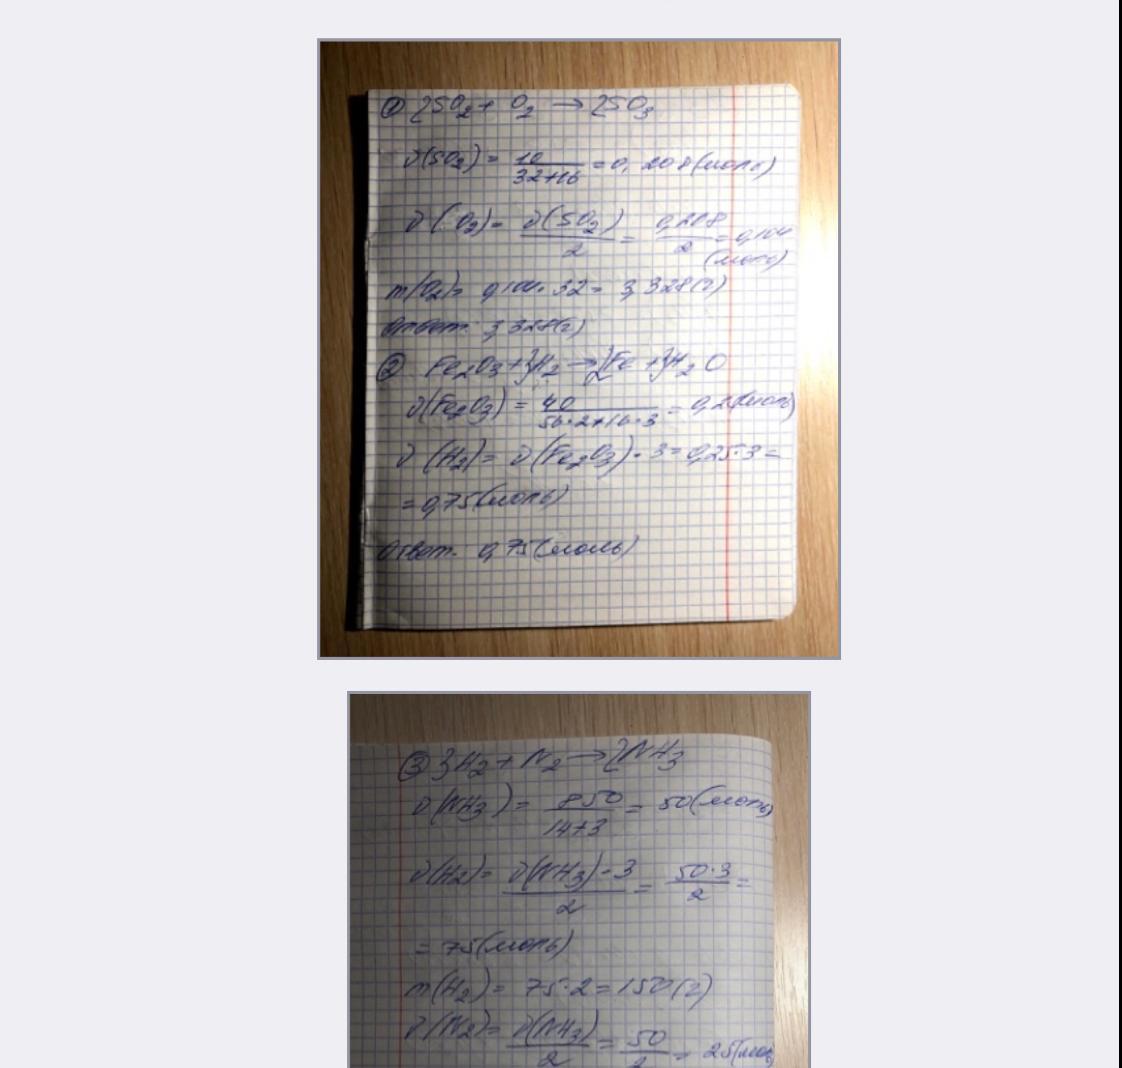 ① 2SO₂ + O₂ → 2SO₃
ν(SO₂) = 10/(32+16) = 0,208(моль)
ν(O₂) = ν(SO₂)/2 = 0,208/2 = 0,104
(моль)
m(O₂) = 0,104·32 = 3,328(г)
Ответ: 3,328(г)
② Fe₂O₃ + 3H₂ → 2Fe + 3H₂O
ν(Fe₂O₃) = 40/(56·2+16·3) = 0,25(моль)
ν(H₂) = ν(Fe₂O₃)·3 = 0,25·3 =
= 0,75(моль)
Ответ: 0,75(моль)
③ 3H₂ + N₂ → 2NH₃
ν(NH₃) = 850/(14+3) = 50(моль)
ν(H₂) = ν(NH₃)·3/2 = 50·3/2 =
= 75(моль)
m(H₂) = 75·2 = 150(г)
ν(N₂) = ν(NH₃)/2 = 50/2 = 25(моль